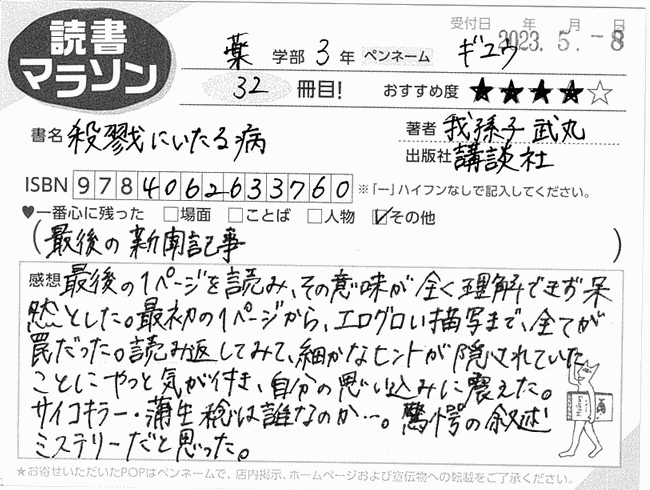 読書
マラソン
受付日 年 月 日
2023. 5. -8
薬 学部 3 年 ペンネーム ギユウ
32 冊目! おすすめ度 ★★★★☆
書名 殺戮にいたる病
著者 我孫子 武丸
出版社 講談社
ISBN 9784062633760 ※「ー」ハイフンなしで記入してください。
♥一番心に残った □場面 □ことば □人物 ☑その他
(最後の新聞記事)
感想 最後の1ページを読み、その意味が全く理解できず呆
然とした。最初の1ページから、エログロい描写まで、全てが
罠だった。読み返してみて、細かなヒントが隠されていた
ことにやっと気が付き、自分の思い込みに震えた。
サイコキラー・蒲生稔は誰なのか…。驚愕の叙述
ミステリーだと思った。
★お寄せいただいたPOPはペンネームで、店内掲示、ホームページおよび宣伝物への転載をご了承ください。